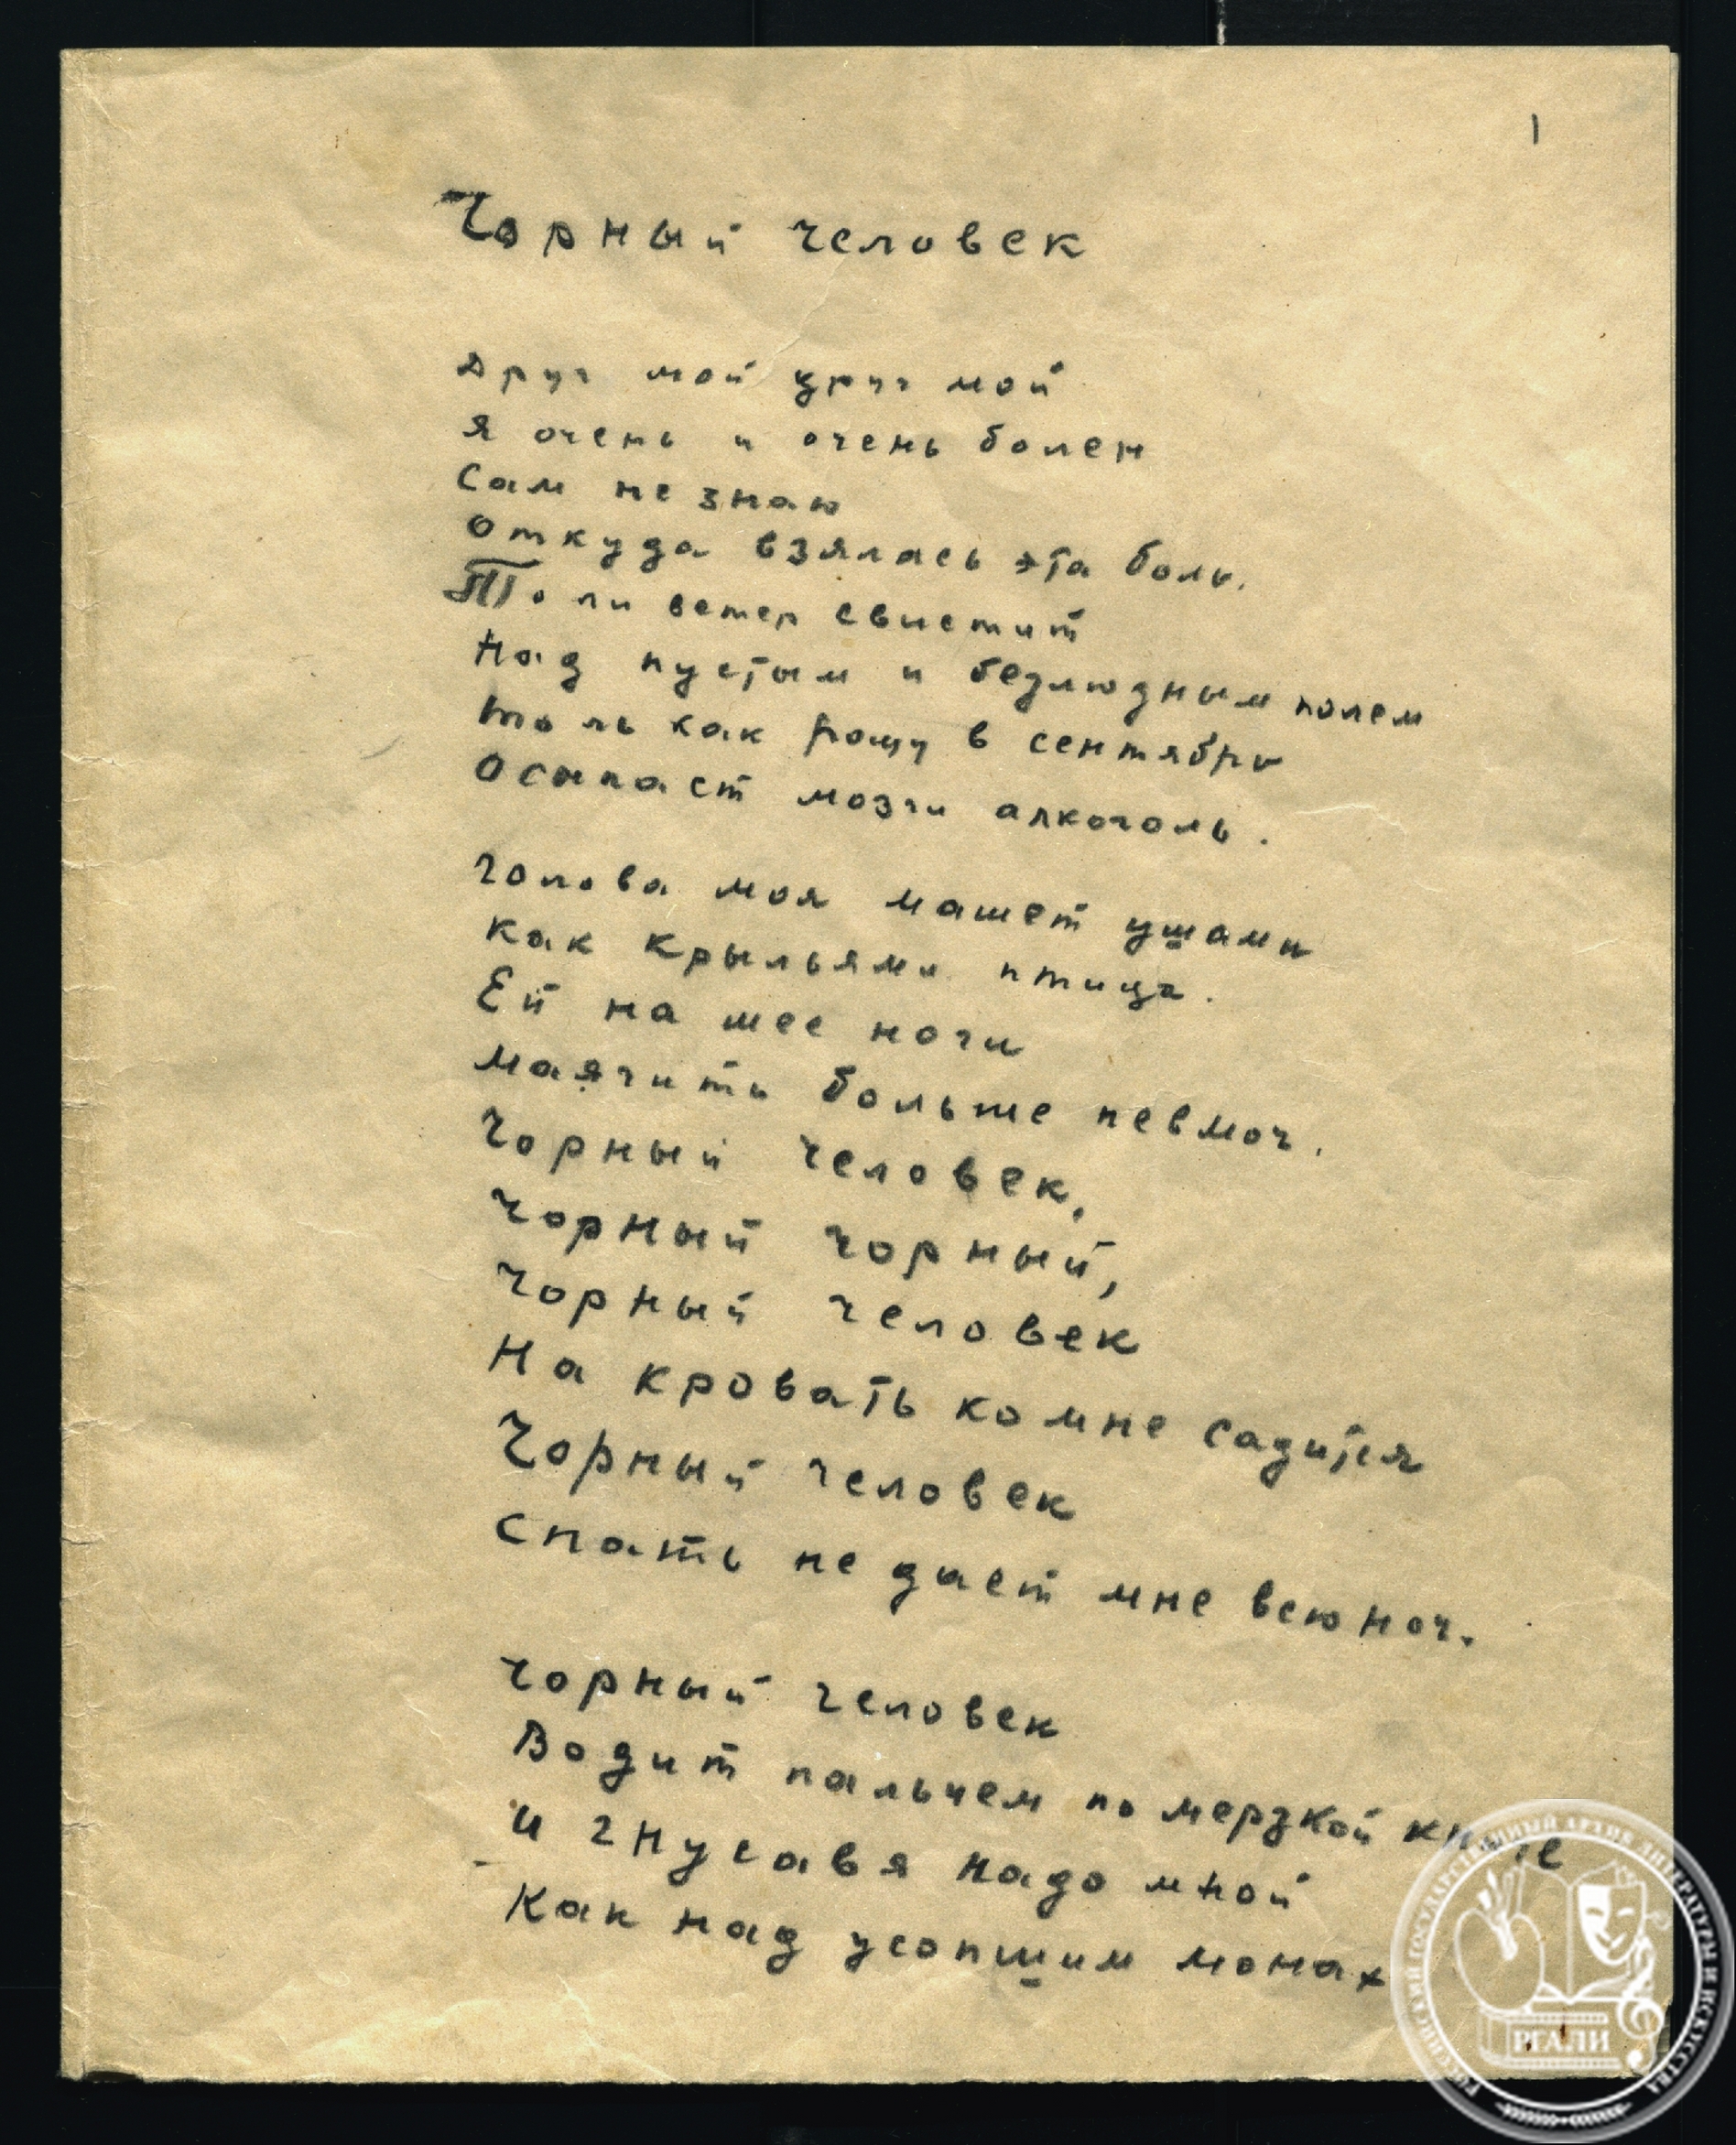 1
Чорный человек
Друг мой друг мой
Я очень и очень болен
Сам не знаю
Откуда взялась эта боль.
То ли ветер свистит
Над пустым и безлюдным полем
То ль как рощу в сентябрь
Осыпает мозги алкоголь.
Голова моя машет ушами
Как крыльями птица.
Ей на шее ноги
Маячить больше невмоч.
Чорный человек,
Чорный чорный,
Чорный человек
На кровать ко мне садится
Чорный человек
Спать не дает мне всю ноч.
Чорный человек
Водит пальцем по мерзкой книге
И гнусавя надо мной
Как над усопшим монах
РОССИЙСКИЙ ГОСУДАРСТВЕННЫЙ АРХИВ ЛИТЕРАТУРЫ И ИСКУССТВА
РГАЛИ